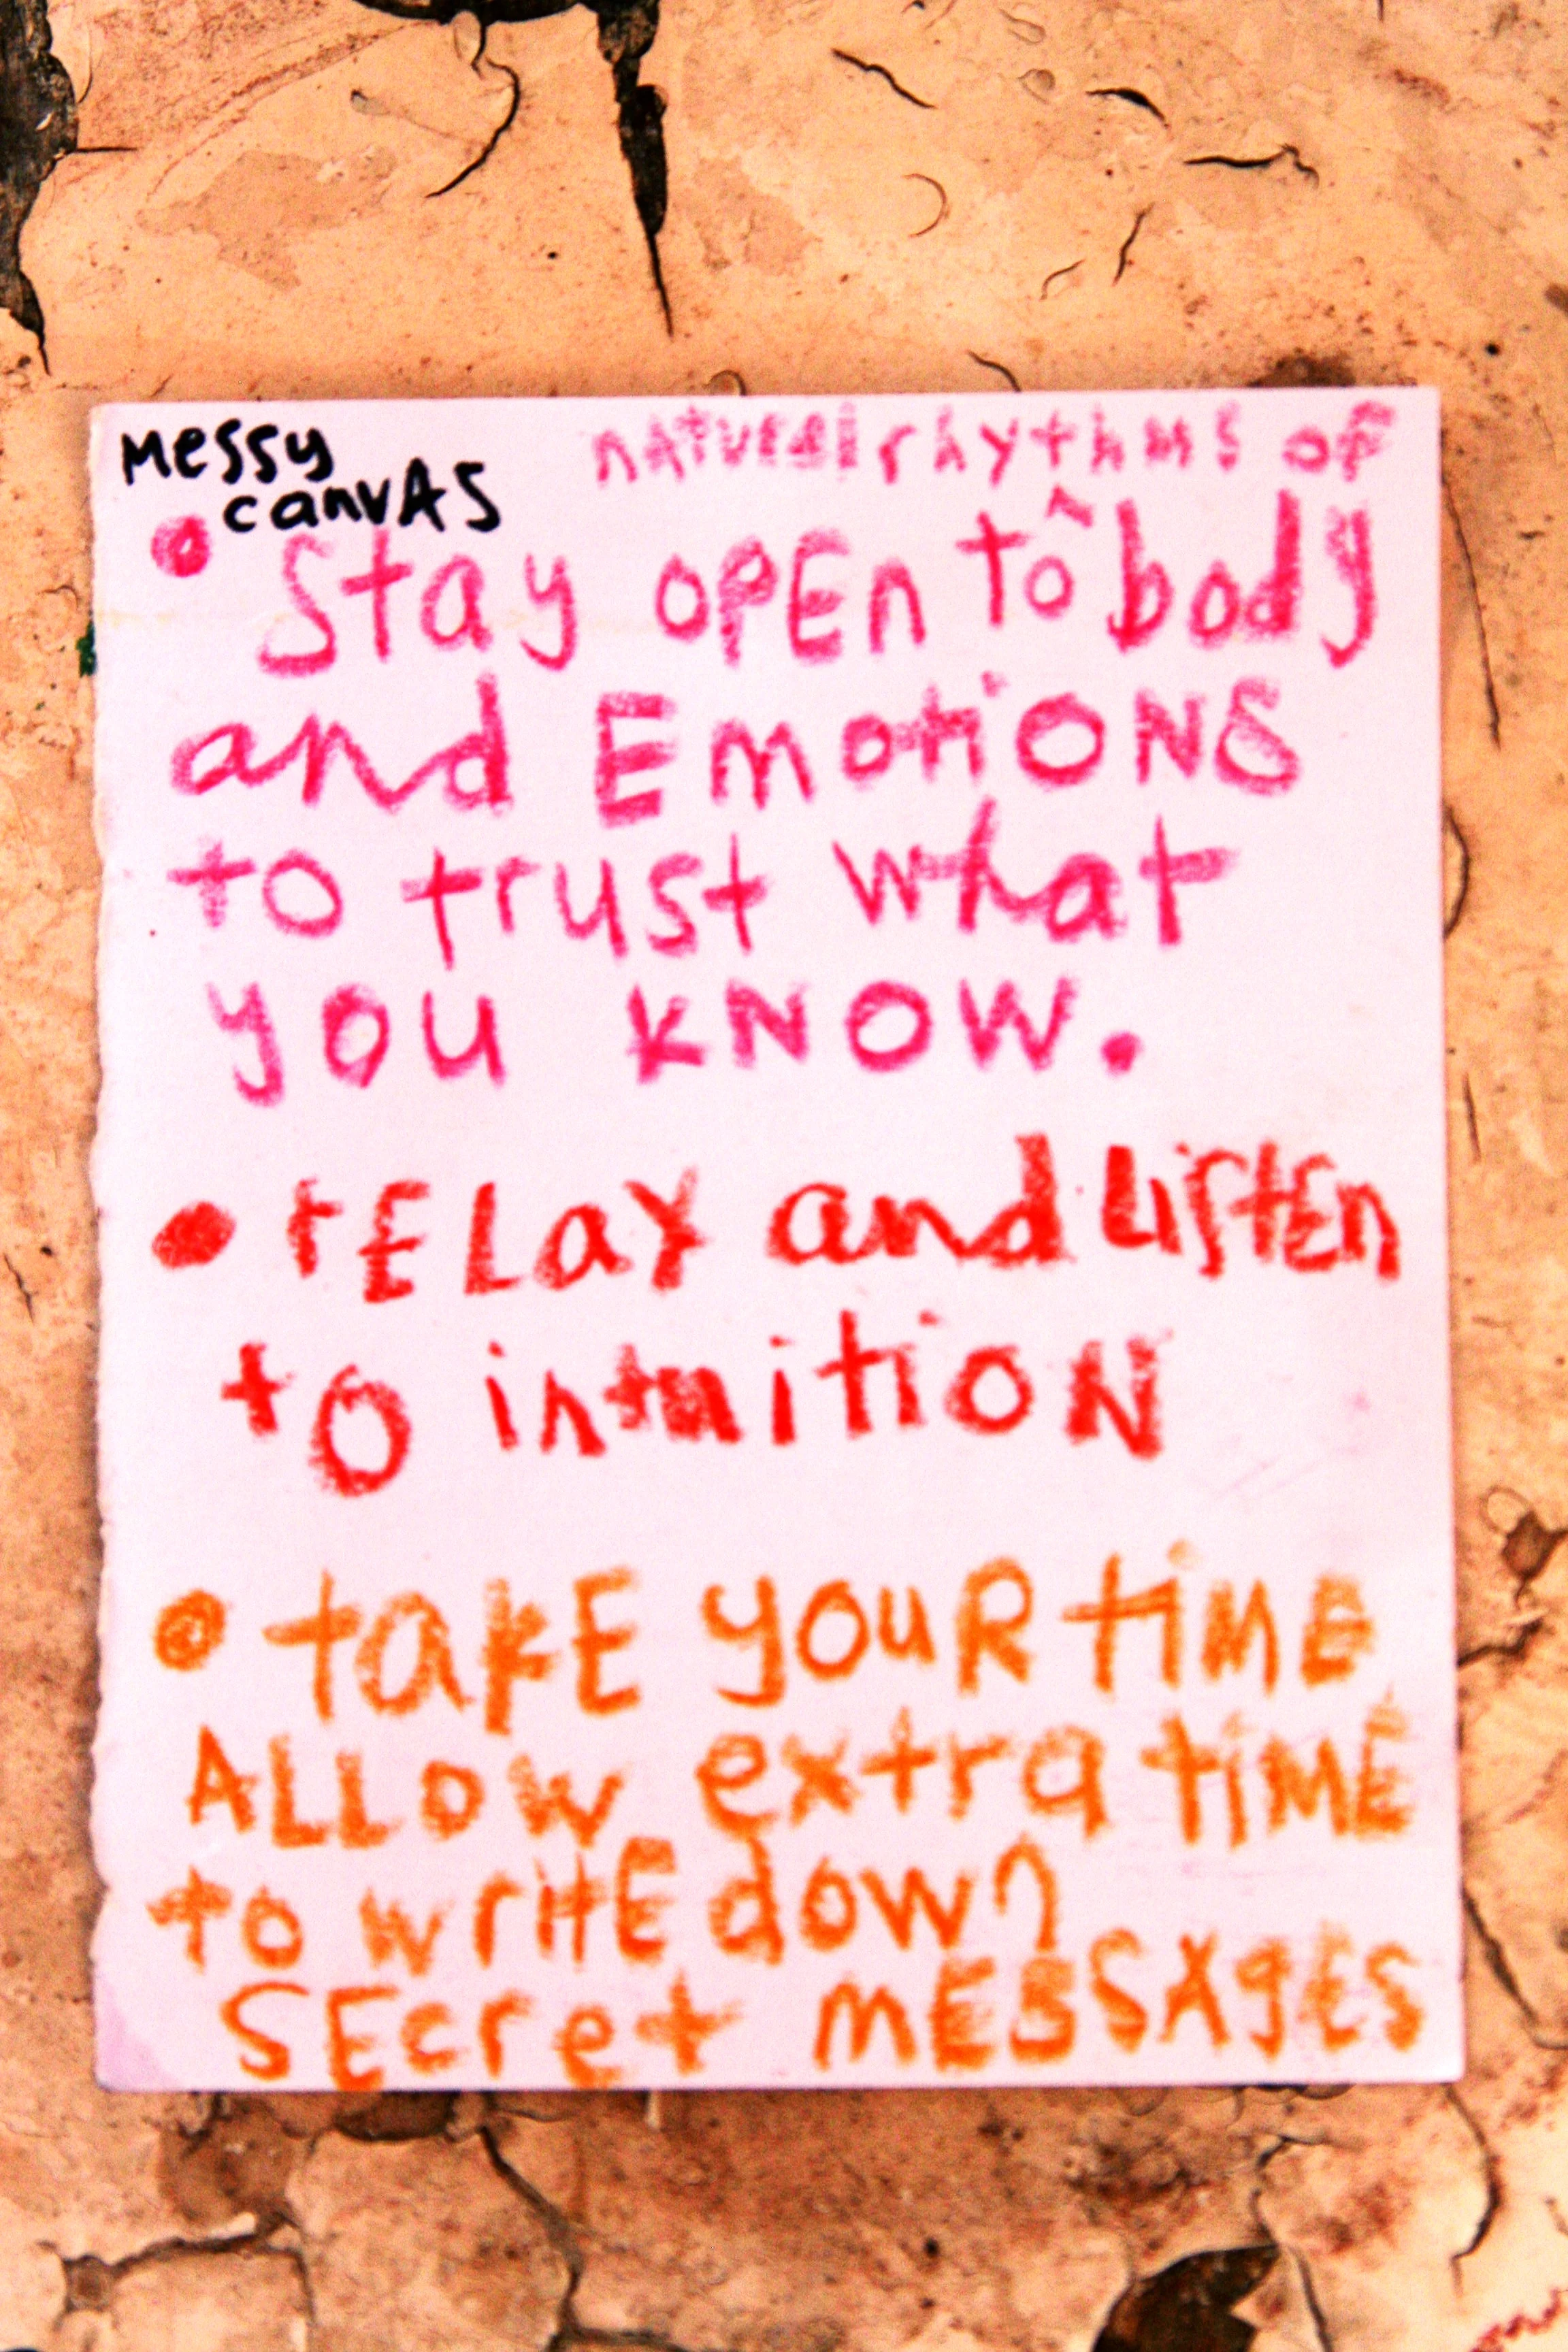 Messy
canvAS
naturalrhythms of
Stay opEn to ^ body
and EmotiONS
to trust what
you kNOW.
rELay and LiStEn
to intuitioN
takE youR tiME
ALLOW extra tiME
to writE down
SEcret mESSAgES